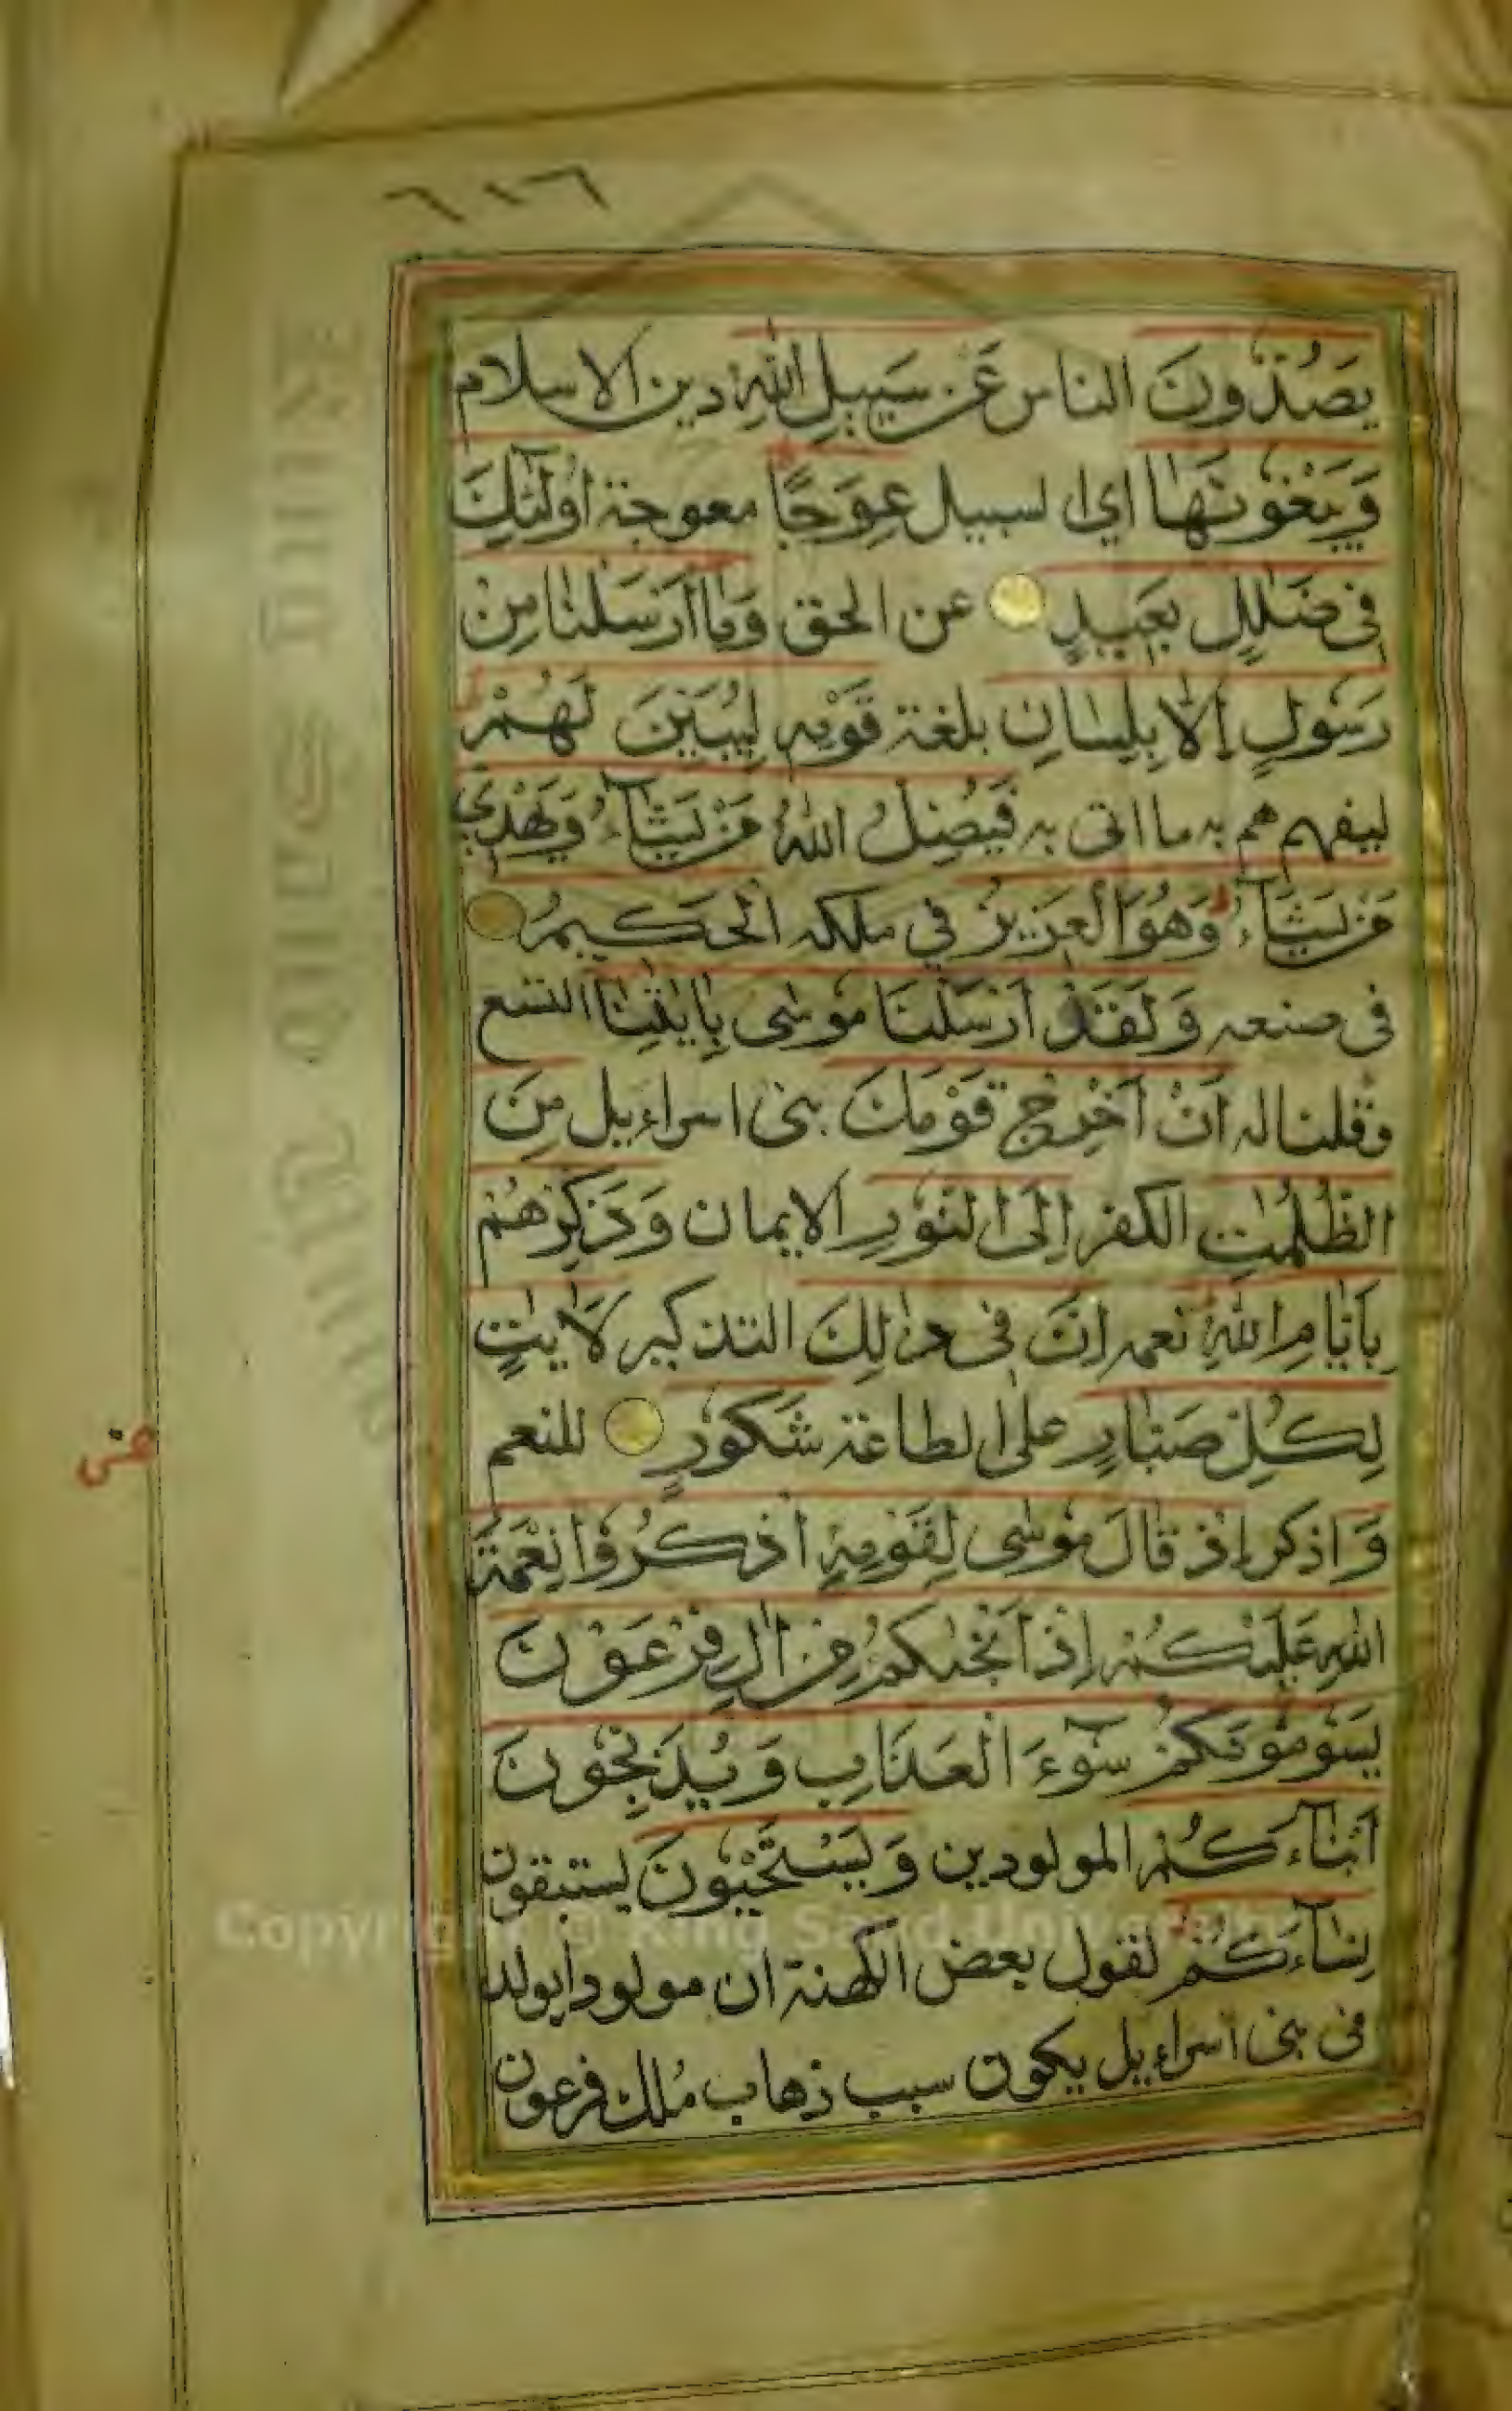 ٦١٦
يَصُدُّونَ الناس عَن سَبِيلِ اللّٰهِ دين الاسلام
وَيَبْغُونَهَا اي السبيل عِوَجًا معوجة اُولٰٓئِكَ
فِى ضَلٰلٍ بَعِيدٍ عن الحق وَمَا اَرْسَلْنَا مِنْ
رَسُولٍ اِلَّا بِلِسَانِ بلغة قَوْمِهِ لِيُبَيِّنَ لَهُمْ
ليفهم هم به ما اتى به فَيُضِلُّ اللّٰهُ مَنْ يَشَآءُ وَيَهْدِي
مَنْ يَشَآءُ وَهُوَ الْعَزِيزُ في ملكه الْحَكِيمُ
فى صنعه وَلَقَدْ اَرْسَلْنَا مُوسٰى بِاٰيٰتِنَا التسع
وقلنا له اَنْ اَخْرِجْ قَوْمَكَ بنى اسراءيل مِنَ
الظُّلُمٰتِ الكفر اِلَى النُّورِ الايمان وَذَكِّرْهُمْ
بِاَيَّامِ اللّٰهِ نعمه اِنَّ فِى ذٰلِكَ التذكير لَاٰيٰتٍ
لِكُلِّ صَبَّارٍ على الطاعة شَكُورٍ للنعم
وَ اذكر اِذْ قَالَ مُوسٰى لِقَوْمِهِ اذْكُرُوا نِعْمَةَ
اللّٰهِ عَلَيْكُمْ اِذْ اَنْجٰىكُمْ مِنْ اٰلِ فِرْعَوْنَ
يَسُومُونَكُمْ سُوٓءَ الْعَذَابِ وَيُذَبِّحُونَ
اَبْنَآءَكُمُ المولودين وَيَسْتَحْيُونَ يستبقون
نِسَآءَكُمْ لقول بعض الكهنة ان مولودا يولد
فى بنى اسراءيل يكون سبب ذهاب مُلك فرعون
Copyright © King Saud University